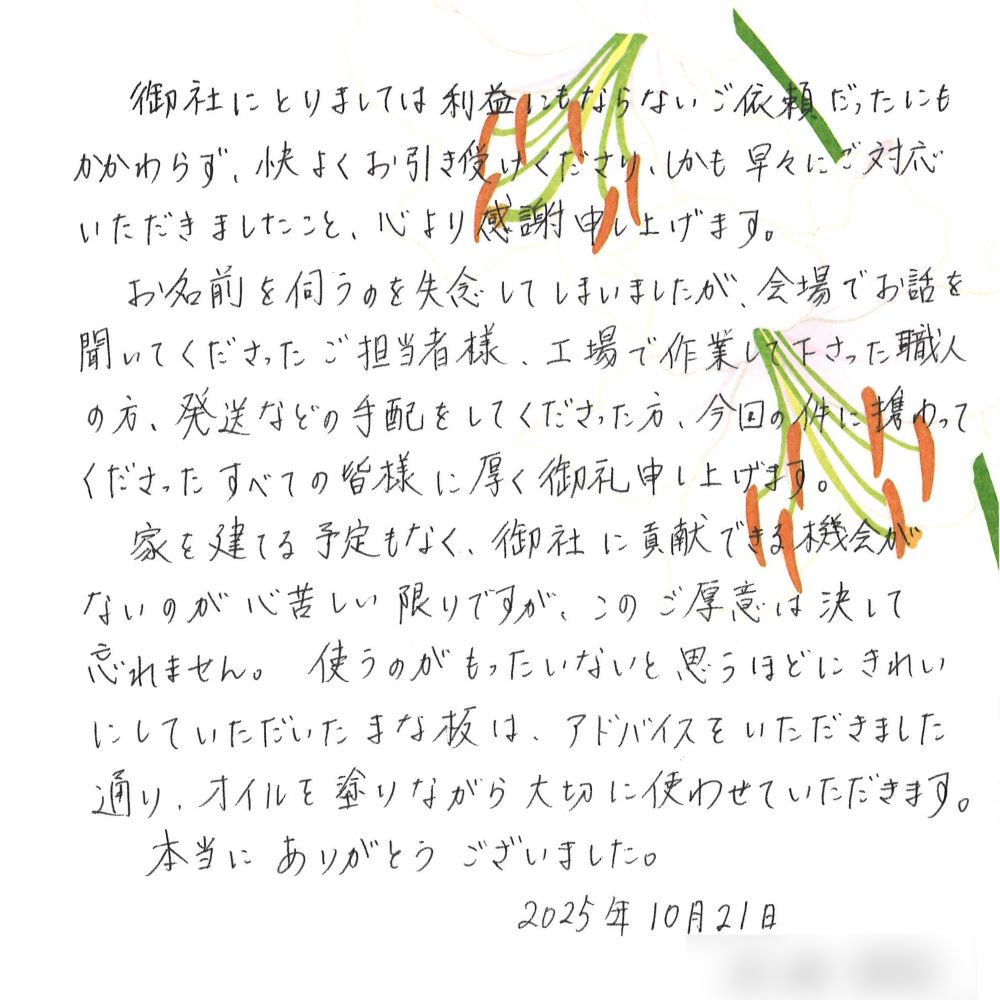 御社にとりましては利益にもならないご依頼だったにも
かかわらず、快よくお引き受けくださり、しかも早々にご対応
いただきましたこと、心より感謝申し上げます。
お名前を伺うのを失念してしまいましたが、会場でお話を
聞いてくださったご担当者様、工場で作業して下さった職人
の方、発送などの手配をしてくださった方、今回の件に携わって
くださったすべての皆様に厚く御礼申し上げます。
家を建てる予定もなく、御社に貢献できる機会が
ないのが心苦しい限りですが、このご厚意は決して
忘れません。使うのがもったいないと思うほどにきれい
にしていただいたまな板は、アドバイスをいただきました
通り、オイルを塗りながら大切に使わせていただきます。
本当にありがとうございました。
2025年10月21日